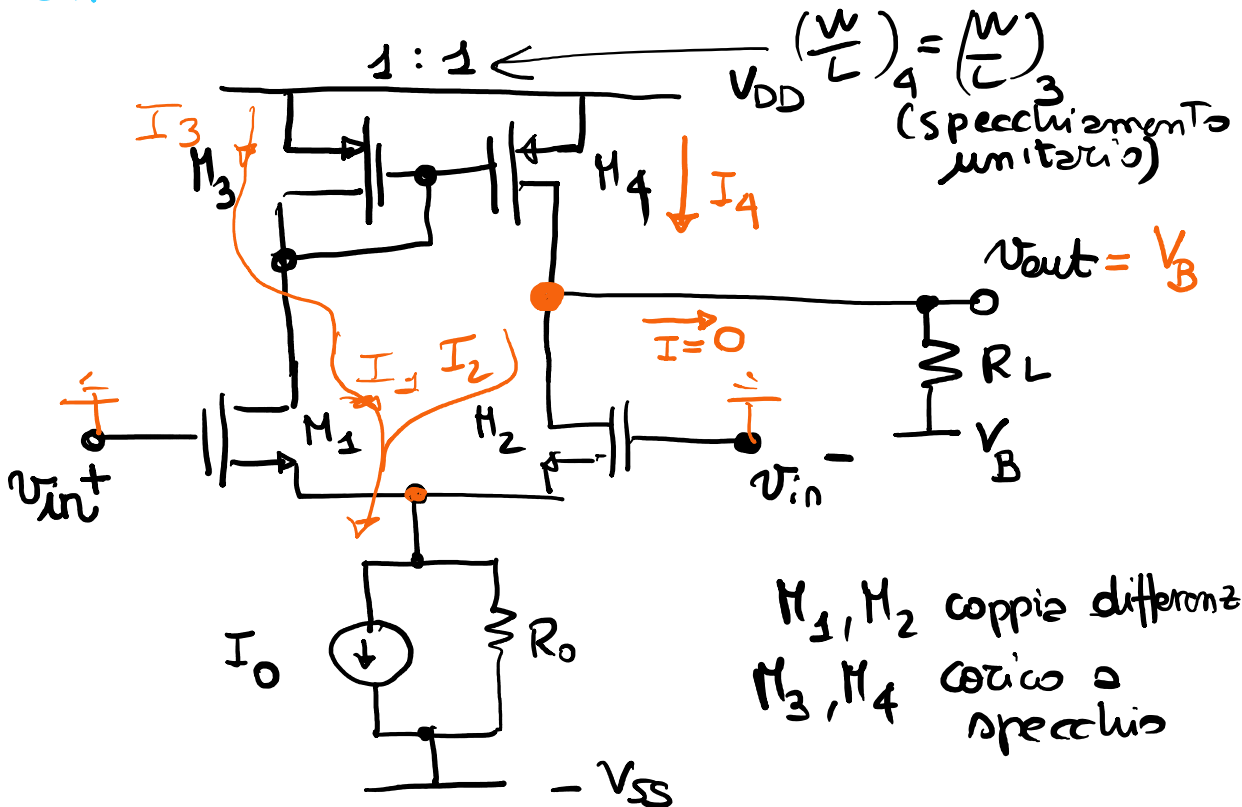 1 : 1
(W/L)4 = (W/L)3
VDD
(specchiamento
unitario)
I3
M3
M4
I4
vout = VB
I = 0
I1
I2
RL
M1
M2
VB
vin+
vin-
I0
R0
M1, M2 coppia differenz
M3, M4 carico a
specchio
- VSS